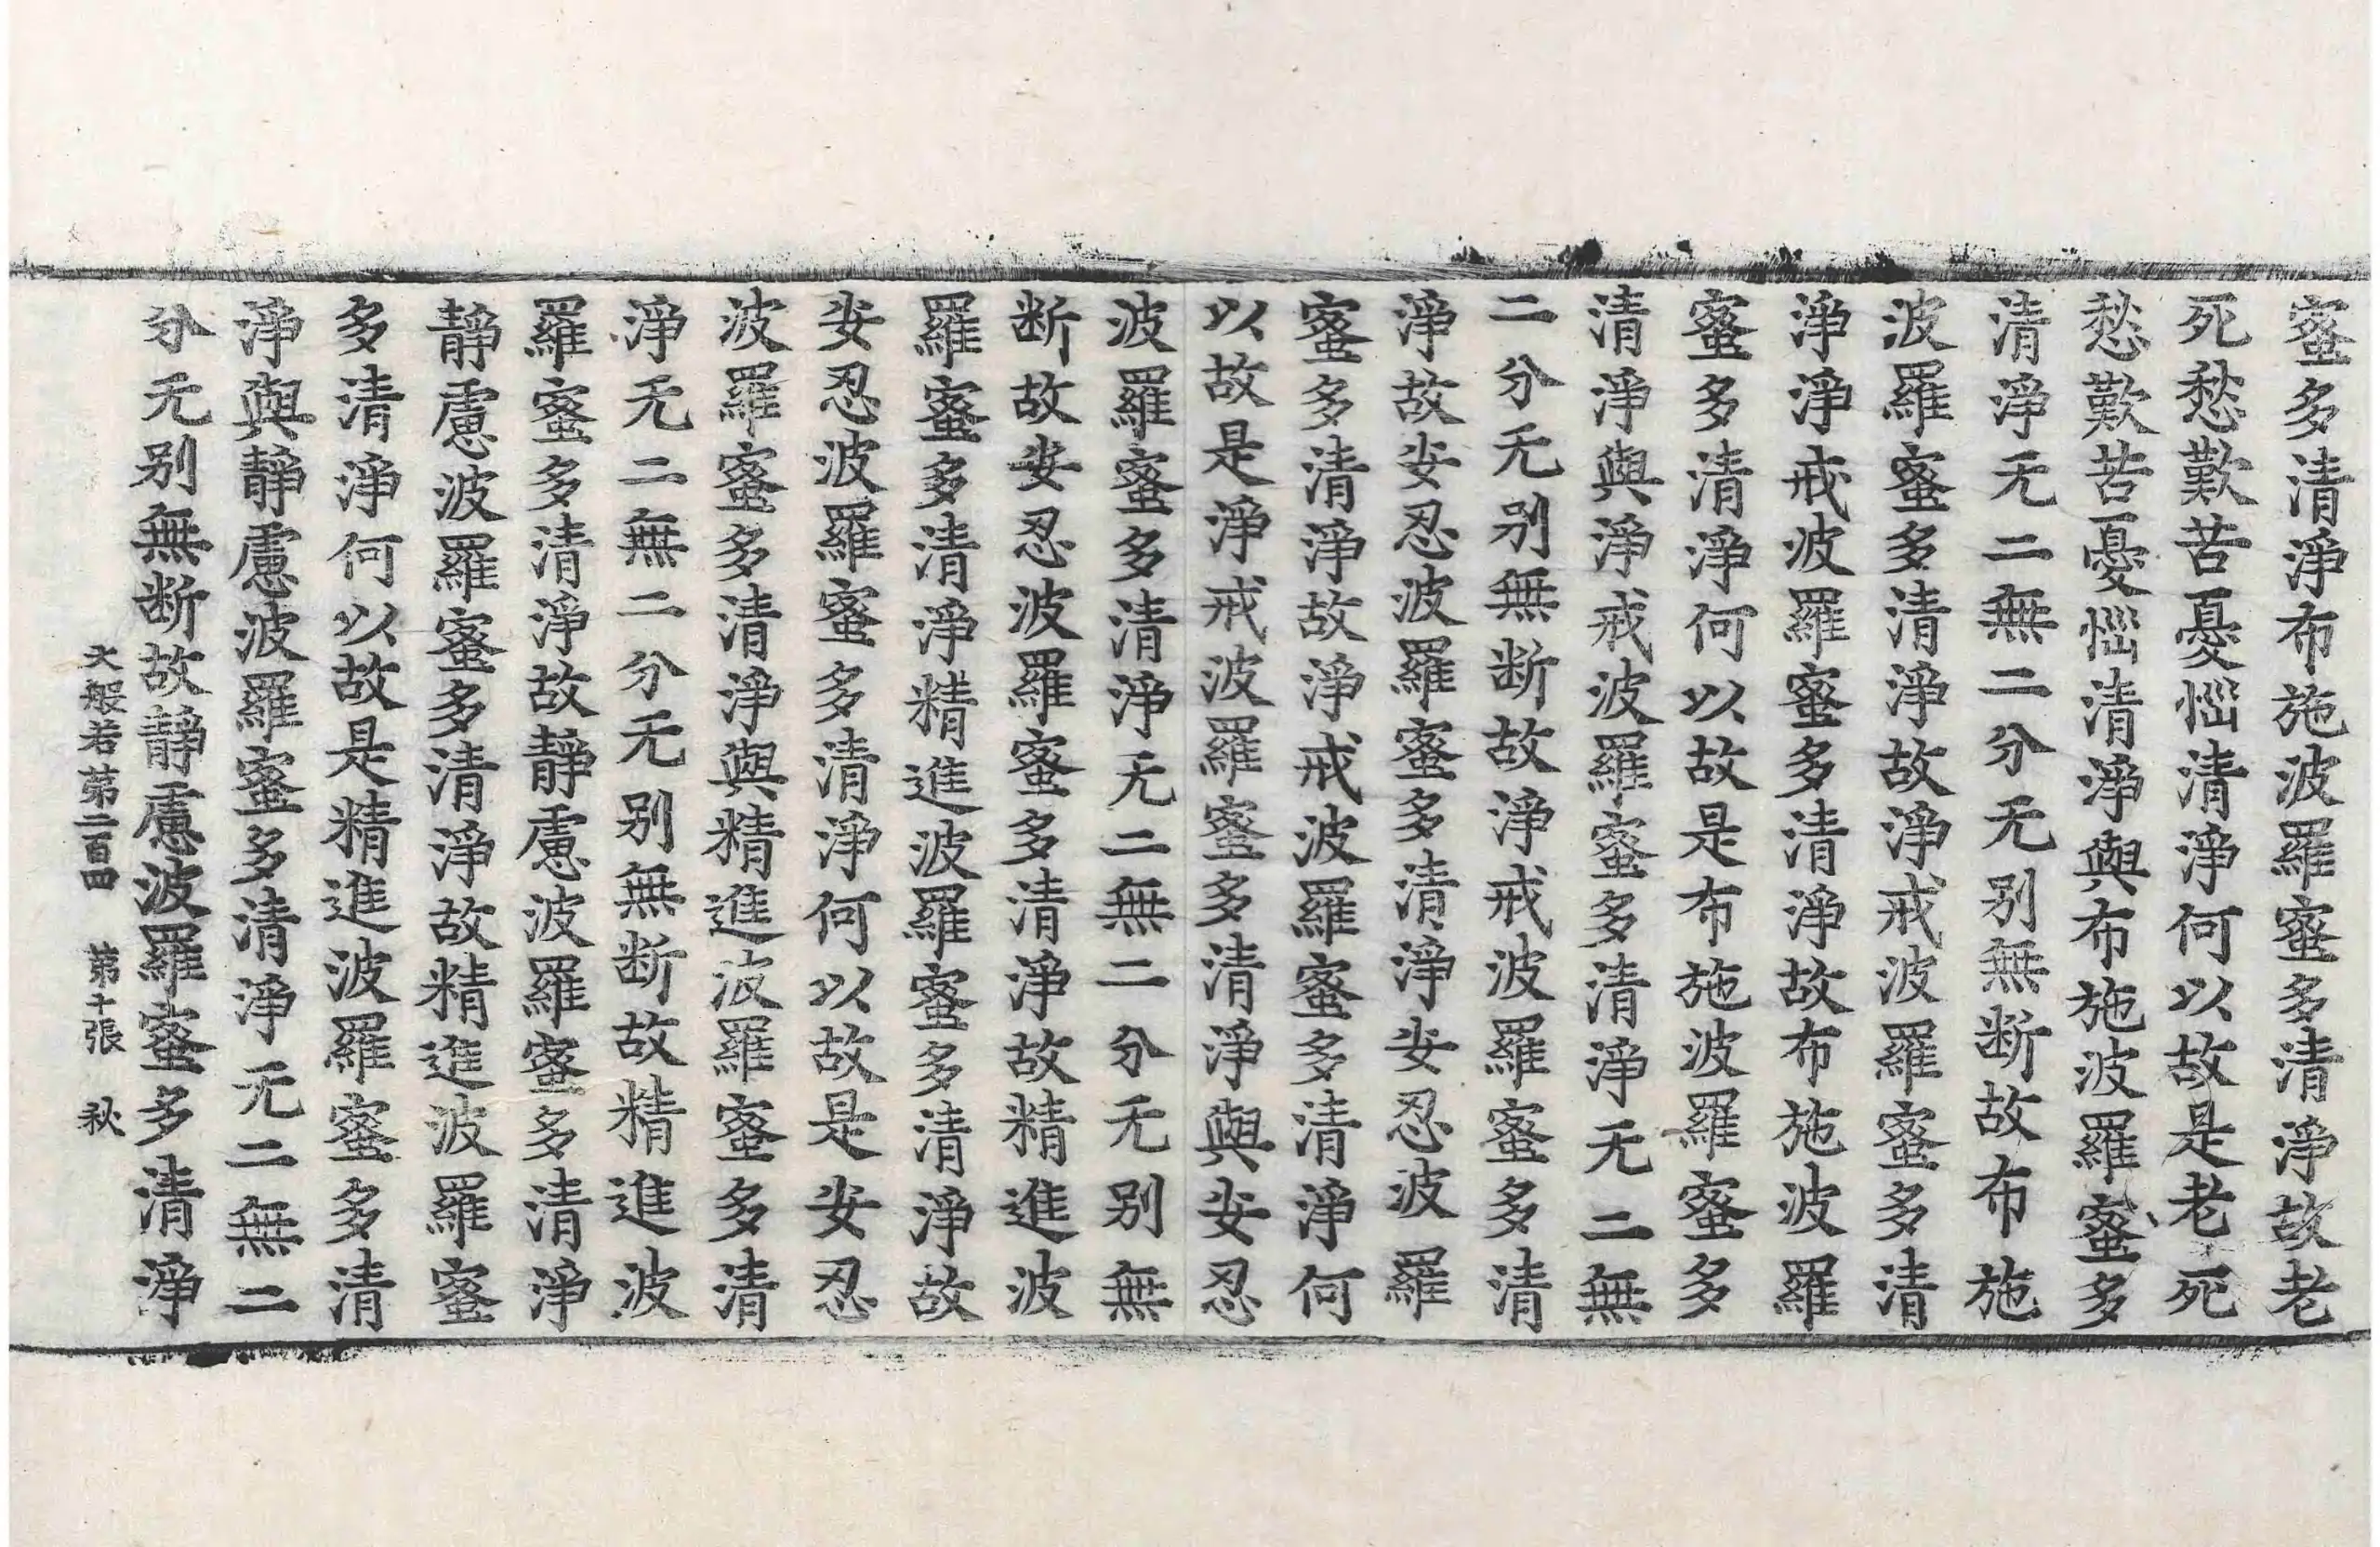 蜜多清淨布施波羅蜜多清淨故老
死愁歎苦憂惱清淨何以故是老死
愁歎苦憂惱清淨與布施波羅蜜多
清淨无二無二分无別無断故布施
波羅蜜多清淨故淨戒波羅蜜多清
淨淨戒波羅蜜多清淨故布施波羅
蜜多清淨何以故是布施波羅蜜多
清淨與淨戒波羅蜜多清淨无二無
二分无別無断故淨戒波羅蜜多清
淨故安忍波羅蜜多清淨安忍波羅
蜜多清淨故淨戒波羅蜜多清淨何
以故是淨戒波羅蜜多清淨與安忍
波羅蜜多清淨无二無二分无別無
断故安忍波羅蜜多清淨故精進波
羅蜜多清淨精進波羅蜜多清淨故
安忍波羅蜜多清淨何以故是安忍
波羅蜜多清淨與精進波羅蜜多清
淨无二無二分无別無断故精進波
羅蜜多清淨故靜慮波羅蜜多清淨
靜慮波羅蜜多清淨故精進波羅蜜
多清淨何以故是精進波羅蜜多清
淨與靜慮波羅蜜多清淨无二無二
分无別無断故靜慮波羅蜜多清淨
大般若第二百四 第十張 秋